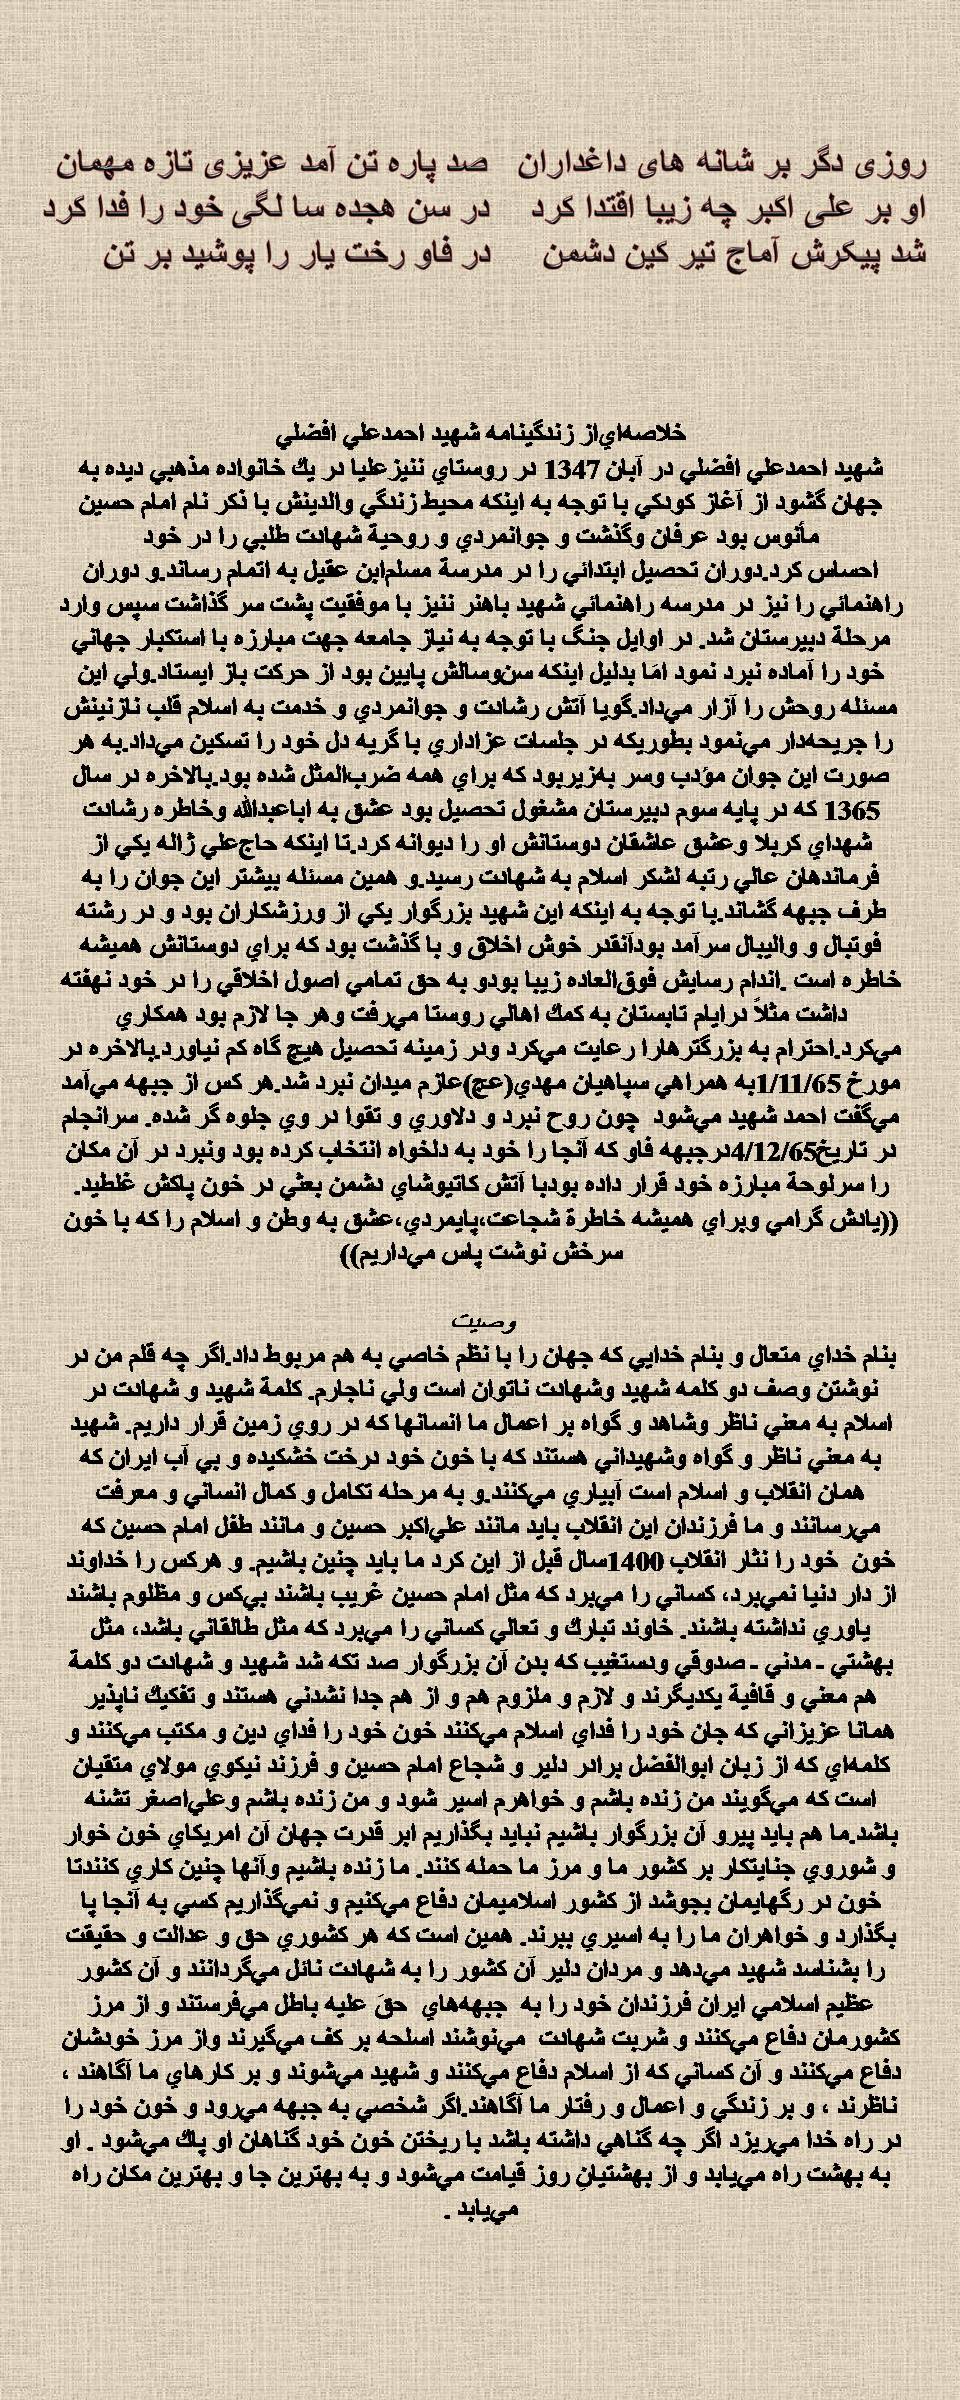 روزی دگر بر شانه های داغداران   صد پاره تن آمد عزیزی تازه مهمان
او بر علی اکبر چه زیبا اقتدا کرد   در سن هجده سا لگی خود را فدا کرد
شد پیکرش آماج تیر کین دشمن   در فاو رخت یار را پوشید بر تن
خلاصه‌اي‌از زندگينامه شهيد احمدعلي افضلي
شهيد احمدعلي افضلي در آبان 1347 در روستاي ننيزعليا در يك خانواده مذهبي ديده به
جهان گشود از آغاز كودكي با توجه به اينكه محيط زندگي والدينش با ذكر نام امام حسين
مأنوس بود عرفان وگذشت و جوانمردي و روحية شهادت طلبي را در خود
احساس كرد.دوران تحصيل ابتدائي را در مدرسة مسلم‌ابن عقيل به اتمام رساند.و دوران
راهنمائي را نيز در مدرسه راهنمائي شهيد باهنر ننيز با موفقيت پشت سر گذاشت سپس وارد
مرحلة دبيرستان شد. در اوايل جنگ با توجه به نياز جامعه جهت مبارزه با استكبار جهاني
خود را آماده نبرد نمود امَا بدليل اينكه سن‌وسالش پايين بود از حركت باز ايستاد.ولي اين
مسئله روحش را آزار مي‌داد.گويا آتش رشادت و جوانمردي و خدمت به اسلام قلب نازنينش
را جريحه‌دار مي‌نمود بطوريكه در جلسات عزاداري با گريه دل خود را تسكين مي‌داد.به هر
صورت اين جوان مؤدب وسر به‌زيربود كه براي همه ضرب‌المثل شده بود.بالاخره در سال
1365 كه در پايه سوم دبيرستان مشغول تحصيل بود عشق به اباعبدالله وخاطره رشادت
شهداي كربلا وعشق عاشقان دوستانش او را ديوانه كرد.تا اينكه حاج‌علي ژاله يكي از
فرماندهان عالي رتبه لشكر اسلام به شهادت رسيد.و همين مسئله بيشتر اين جوان را به
طرف جبهه گشاند.با توجه به اينكه اين شهيد بزرگوار يكي از ورزشكاران بود و در رشته
فوتبال و واليبال سرآمد بودآنقدر خوش اخلاق و با گذشت بود كه براي دوستانش هميشه
خاطره است .اندام رسايش فوق‌العاده زيبا بودو به حق تمامي اصول اخلاقي را در خود نهفته
داشت مثلاً درايام تابستان به كمك اهالي روستا مي‌رفت وهر جا لازم بود همكاري
مي‌كرد.احترام به بزرگترهارا رعايت مي‌كرد ودر زمينه تحصيل هيچ گاه كم نياورد.بالاخره در
مورخ 1/11/65به همراهي سپاهيان مهدي(عج)عازم ميدان نبرد شد.هر كس از جبهه مي‌آمد
مي‌گفت احمد شهيد مي‌شود  چون روح نبرد و دلاوري و تقوا در وي جلوه گر شده. سرانجام
در تاريخ4/12/65درجبهه فاو كه آنجا را خود به دلخواه انتخاب كرده بود ونبرد در آن مكان
را سرلوحة مبارزه خود قرار داده بودبا آتش كاتيوشاي دشمن بعثي در خون پاكش غلطيد.
((يادش گرامي وبراي هميشه خاطرة شجاعت،پايمردي،عشق به وطن و اسلام را كه با خون
سرخش نوشت پاس مي‌داريم))
وصيت
بنام خداي متعال و بنام خدايي كه جهان را با نظم خاصي به هم مربوط داد.اگر چه قلم من در
نوشتن وصف دو كلمه شهيد وشهادت ناتوان است ولي ناچارم. كلمة شهيد و شهادت در
اسلام به معني ناظر وشاهد و گواه بر اعمال ما انسانها كه در روي زمين قرار داريم. شهيد
به معني ناظر و گواه وشهيداني هستند كه با خون خود درخت خشكيده و بي آب ايران كه
همان انقلاب و اسلام است آبياري مي‌كنند.و به مرحله تكامل و كمال انساني و معرفت
مي‌رسانند و ما فرزندان اين انقلاب بايد مانند علي‌اكبر حسين و مانند طفل امام حسين كه
خون  خود را نثار انقلاب 1400سال قبل از اين كرد ما بايد چنين باشيم. و هركس را خداوند
از دار دنيا نمي‌برد، كساني را مي‌برد كه مثل امام حسين غريب باشند بي‌كس و مظلوم باشند
ياوري نداشته باشند. خاوند تبارك و تعالي كساني را مي‌برد كه مثل طالقاني باشد، مثل
بهشتي ـ مدني ـ صدوقي ودستغيب كه بدن آن بزرگوار صد تكه شد شهيد و شهادت دو كلمة
هم معني و قافية يكديگرند و لازم و ملزوم هم و از هم جدا نشدني هستند و تفكيك ناپذير
همانا عزيزاني كه جان خود را فداي اسلام مي‌كنند خون خود را فداي دين و مكتب مي‌كنند و
كلمه‌اي كه از زبان ابوالفضل برادر دلير و شجاع امام حسين و فرزند نيكوي مولاي متقيان
است كه مي‌گويند من زنده باشم و خواهرم اسير شود و من زنده باشم وعلي‌اصغر تشنه
باشد.ما هم بايد پيرو آن بزرگوار باشيم نبايد بگذاريم ابر قدرت جهان آن امريكايِ خون خوار
و شوروي جنايتكار بر كشور ما و مرز ما حمله كنند. ما زنده باشيم وآنها چنين كاري كنندتا
خون در رگهايمان بجوشد از كشور اسلاميمان دفاع مي‌كنيم و نمي‌گذاريم كسي به آنجا پا
بگذارد و خواهران ما را به اسيري ببرند. همين است كه هر كشوري حق و عدالت و حقيقت
را بشناسد شهيد مي‌دهد و مردان دلير آن كشور را به شهادت نائل مي‌گردانند و آن كشور
عظيم اسلامي ايران فرزندان خود را به  جبهه‌هاي  حقَ عليه باطل مي‌فرستند و از مرز
كشورمان دفاع مي‌كنند و شربت شهادت  مي‌نوشند اسلحه بر كف مي‌گيرند واز مرز خودشان
دفاع مي‌كنند و آن كساني كه از اسلام دفاع مي‌كنند و شهيد مي‌شوند و بر كارهاي ما آگاهند ،
ناظرند ، و بر زندگي و اعمال و رفتار ما آگاهند.اگر شخصي به جبهه مي‌رود و خون خود را
در راه خدا مي‌ريزد اگر چه گناهي داشته باشد با ريختن خون خود گناهان او پاك مي‌شود . او
به بهشت راه مي‌يابد و از بهشتيانِ روز قيامت مي‌شود و به بهترين جا و بهترين مكان راه
مي‌يابد .